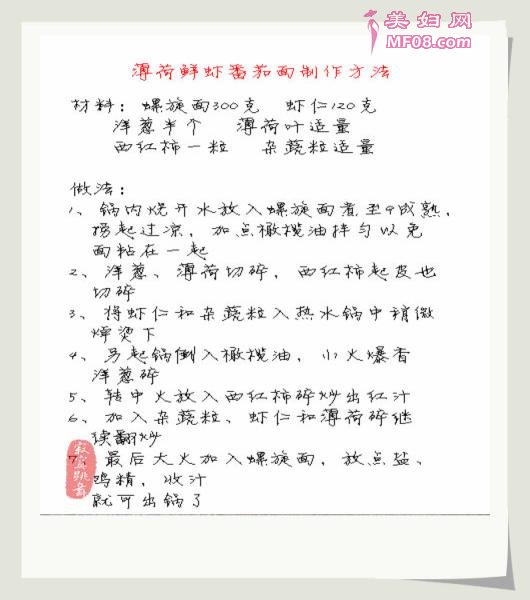 美妇网
MF08.com
薄荷鲜虾番茄面制作方法
材料：螺旋面300克 虾仁120克
洋葱半个 薄荷叶适量
西红柿一粒 杂蔬粒适量
做法：
1、锅内烧开水放入螺旋面煮至9成熟，
捞起过凉，加点橄榄油拌匀以免
面粘在一起
2、洋葱、薄荷切碎，西红柿起皮也
切碎
3、将虾仁和杂蔬粒入热水锅中稍微
焯烫下
4、另起锅倒入橄榄油，小火爆香
洋葱碎
5、转中火放入西红柿碎炒出红汁
6、加入杂蔬粒、虾仁和薄荷碎继
续翻炒
7、最后大火加入螺旋面，放点盐、
鸡精，收汁
就可出锅了